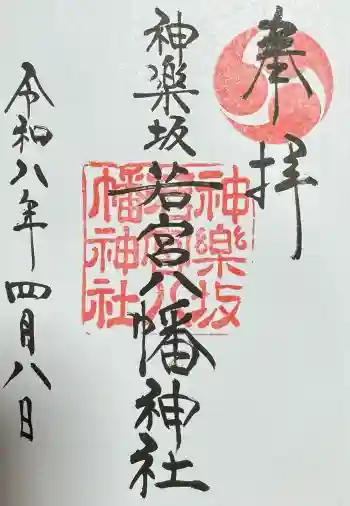 奉拝
神楽坂若宮八幡神社
神楽坂
若宮八
幡神社
令和八年四月八日